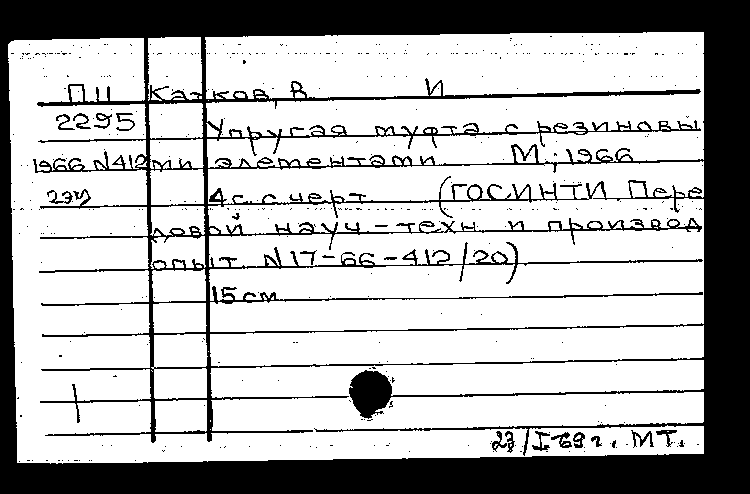 П II Катков, В. И
2295 Упругая муфта с резиновы
1966 N412 ми элементами. М., 1966
2эц 4 с. с черт. (ГОСИНТИ. Пере
довой науч-техн. и производ.
опыт N17-66-412/20)
15 см
23/I-69 г. МТ.